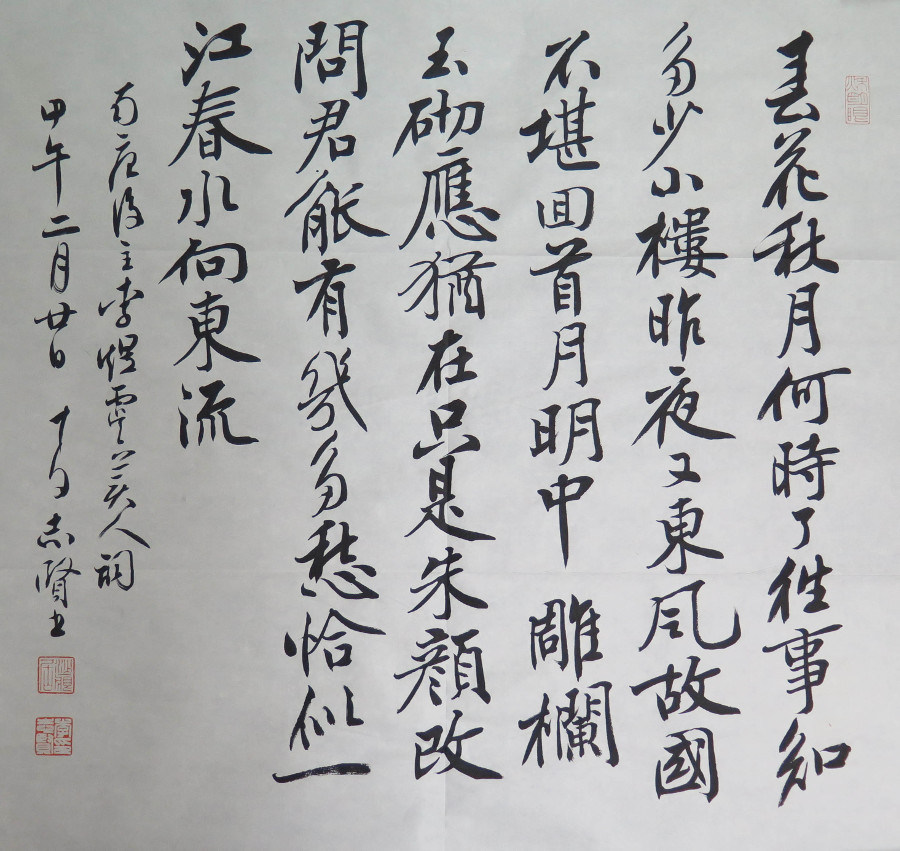 春花秋月何時了往事知
多少小樓昨夜又東風故國
不堪回首月明中 雕欄
玉砌應猶在只是朱顏改
問君能有幾多愁恰似一
江春水向東流
南唐後主李煜虞美人詞
甲午二月廿日 志賢書